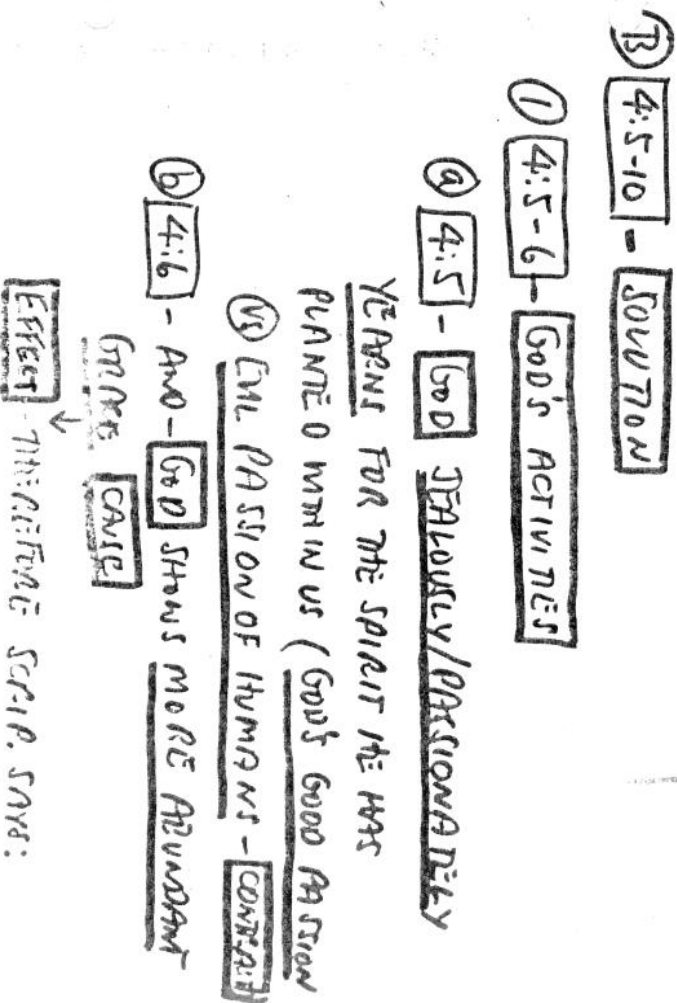 B 4:5-10 - SOLUTION
1 4:5-6 - GOD'S ACTIVITIES
a 4:5 - GOD JEALOUSLY/PASSIONATELY
YEARNS FOR THE SPIRIT HE HAS
PLANTED WITHIN US (GOD'S GOOD PASSION
VS EVIL PASSION OF HUMANS - CONTRAST
b 4:6 - AND - GOD SHOWS MORE ABUNDANT
GRACE CAUSE
↓
EFFECT - THEREFORE SCRIP. SAYS: